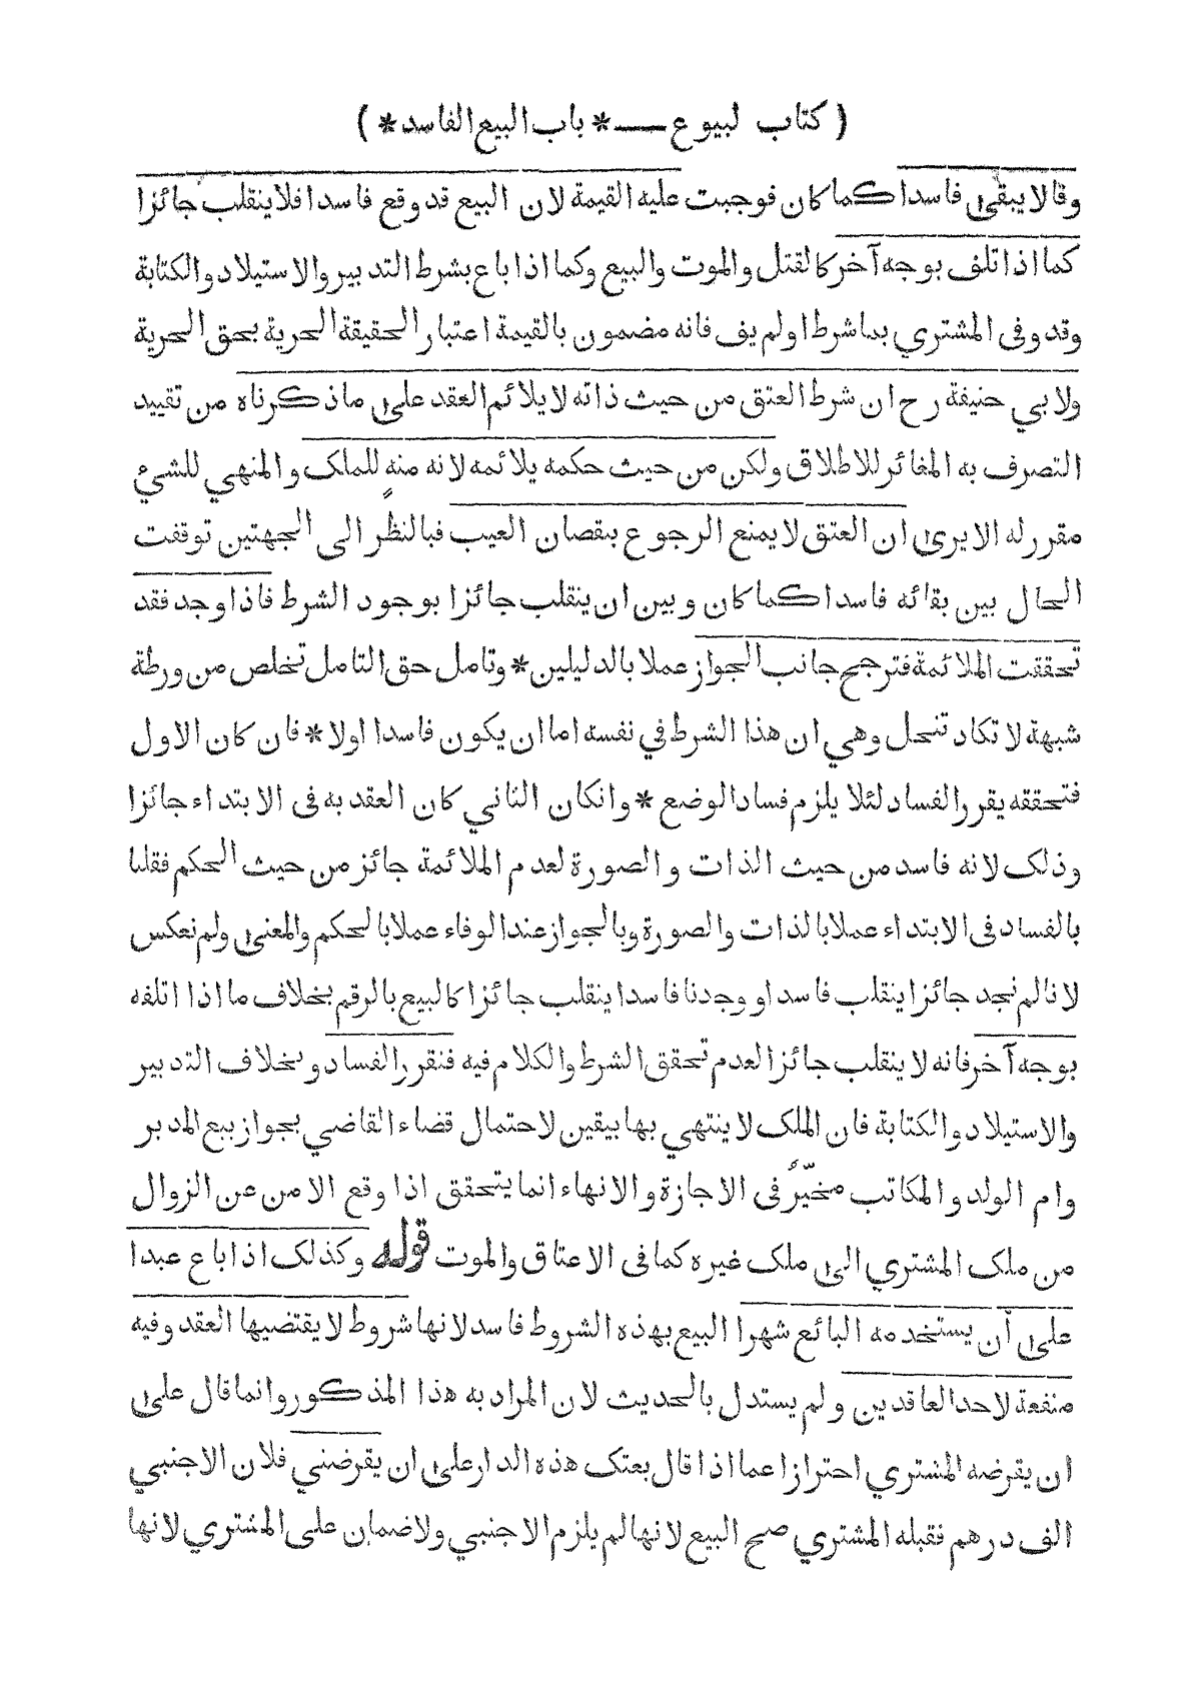 ( كتاب لبيوع — * باب البيع الفاسد * )
وقالا يبقى فاسدا كما كان فوجبت عليه القيمة لان البيع قد وقع فاسدا فلا ينقلب جائزا
كما اذا تلف بوجه آخر كالقتل والموت والبيع وكما اذا باع بشرط التدبير والاستيلاد والكتابة
وقد وفى المشتري بما شرط اولم يف فانه مضمون بالقيمة اعتبارا لحقيقة الحرية بحق الحرية
ولابي حنيفة رح ان شرط العتق من حيث ذاته لا يلائم العقد على ماذكرناه من تقييد
التصرف به المغائر للاطلاق ولكن من حيث حكمه يلائمه لانه منه للملك والمنهي للشيء
مقرر له الا يرى ان العتق لا يمنع الرجوع بنقصان العيب فبالنظر الى الجهتين توقفت
الحال بين بقائه فاسدا كما كان وبين ان ينقلب جائزا بوجود الشرط فاذا وجد فقد
تحققت الملائمة فترجح جانب الجواز عملا بالدليلين * وتامل حق التامل تخلص من ورطة
شبهة لا تكاد تنحل وهي ان هذا الشرط في نفسه اما ان يكون فاسدا اولا * فان كان الاول
فتحققه يقرر الفساد لئلا يلزم فساد الوضع * وانكان الثاني كان العقد به فى الابتداء جائزا
وذلك لانه فاسد من حيث الذات والصورة لعدم الملائمة جائز من حيث الحكم فقلنا
بالفساد فى الابتداء عملا بالذات والصورة وبالجواز عند الوفاء عملا بالحكم والمعنى ولم نعكس
لانا لم نجد جائزا ينقلب فاسدا ووجدنا فاسدا ينقلب جائزا كالبيع بالرقم بخلاف ما اذا اتلفه
بوجه آخر فانه لا ينقلب جائزا لعدم تحقق الشرط والكلام فيه فتقرر الفساد وبخلاف التدبير
والاستيلاد والكتابة فان الملك لا ينتهي بها بيقين لاحتمال قضاء القاضي بجواز بيع المدبر
وام الولد والمكاتب مخيّرٌ فى الاجازة والانهاء انما يتحقق اذا وقع الامن عن الزوال
من ملك المشتري الى ملك غيره كما فى الاعتاق والموت قوله وكذلك اذا باع عبدا
على أن يستخدمه البائع شهرا البيع بهذه الشروط فاسد لانها شروط لا يقتضيها العقد وفيه
منفعة لاحد العاقدين ولم يستدل بالحديث لان المراد به هذا المذكور وانما قال على
ان يقرضه المشتري احترازا عما اذا قال بعتك هذه الدار على ان يقرضني فلان الاجنبي
الف درهم فقبله المشتري صح البيع لانها لم يلزم الاجنبي ولا ضمان على المشتري لانها